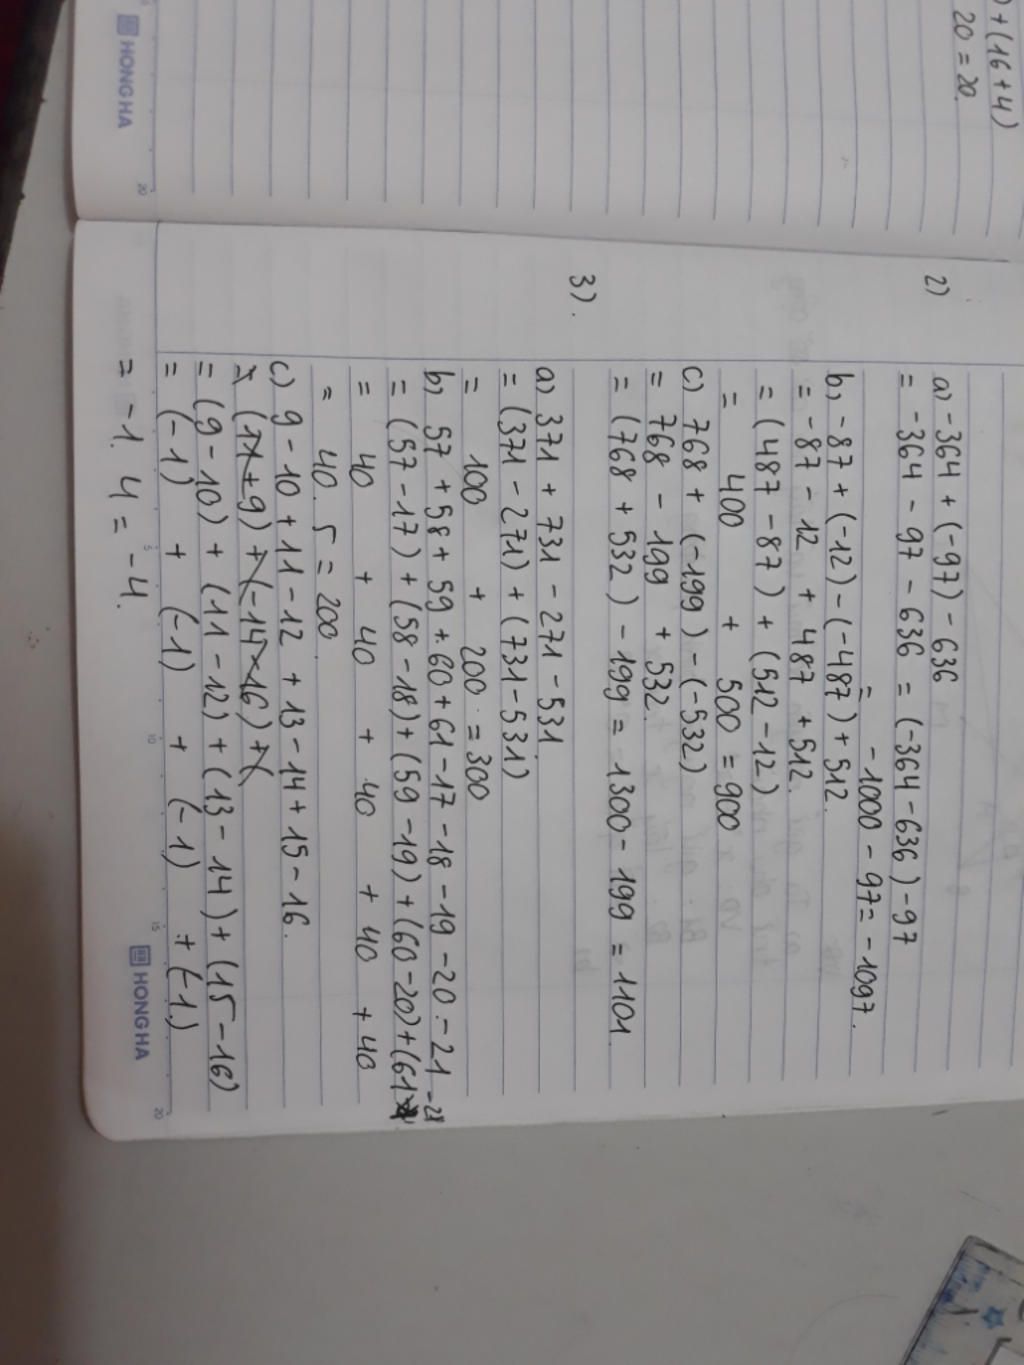 ) + (16 + 4)
20 = 20.
HONG HA
20
2)
a) -364 + (-97) - 636
= -364 - 97 - 636 = (-364 - 636) - 97
= -1000 - 97 = -1097.
b) -87 + (-12) - (-487) + 512.
= -87 - 12 + 487 + 512.
= (487 - 87) + (512 - 12)
= 400 + 500 = 900
c) 768 + (-199) - (-532)
= 768 - 199 + 532.
= (768 + 532) - 199 = 1300 - 199 = 1101.
3).
a) 371 + 731 - 271 - 531
= (371 - 271) + (731 - 531)
= 100 + 200 = 300
b) 57 + 58 + 59 + 60 + 61 - 17 - 18 - 19 - 20 - 21
= (57 - 17) + (58 - 18) + (59 - 19) + (60 - 20) + (61 - 21
= 40 + 40 + 40 + 40 + 40
= 40. 5 = 200.
c) 9 - 10 + 11 - 12 + 13 - 14 + 15 - 16.
= (9 - 10) + (11 - 12) + (13 - 14) + (15 - 16)
= (-1) + (-1) + (-1) + (-1)
= -1. 4 = -4.
5 10 15 20
HONG HA